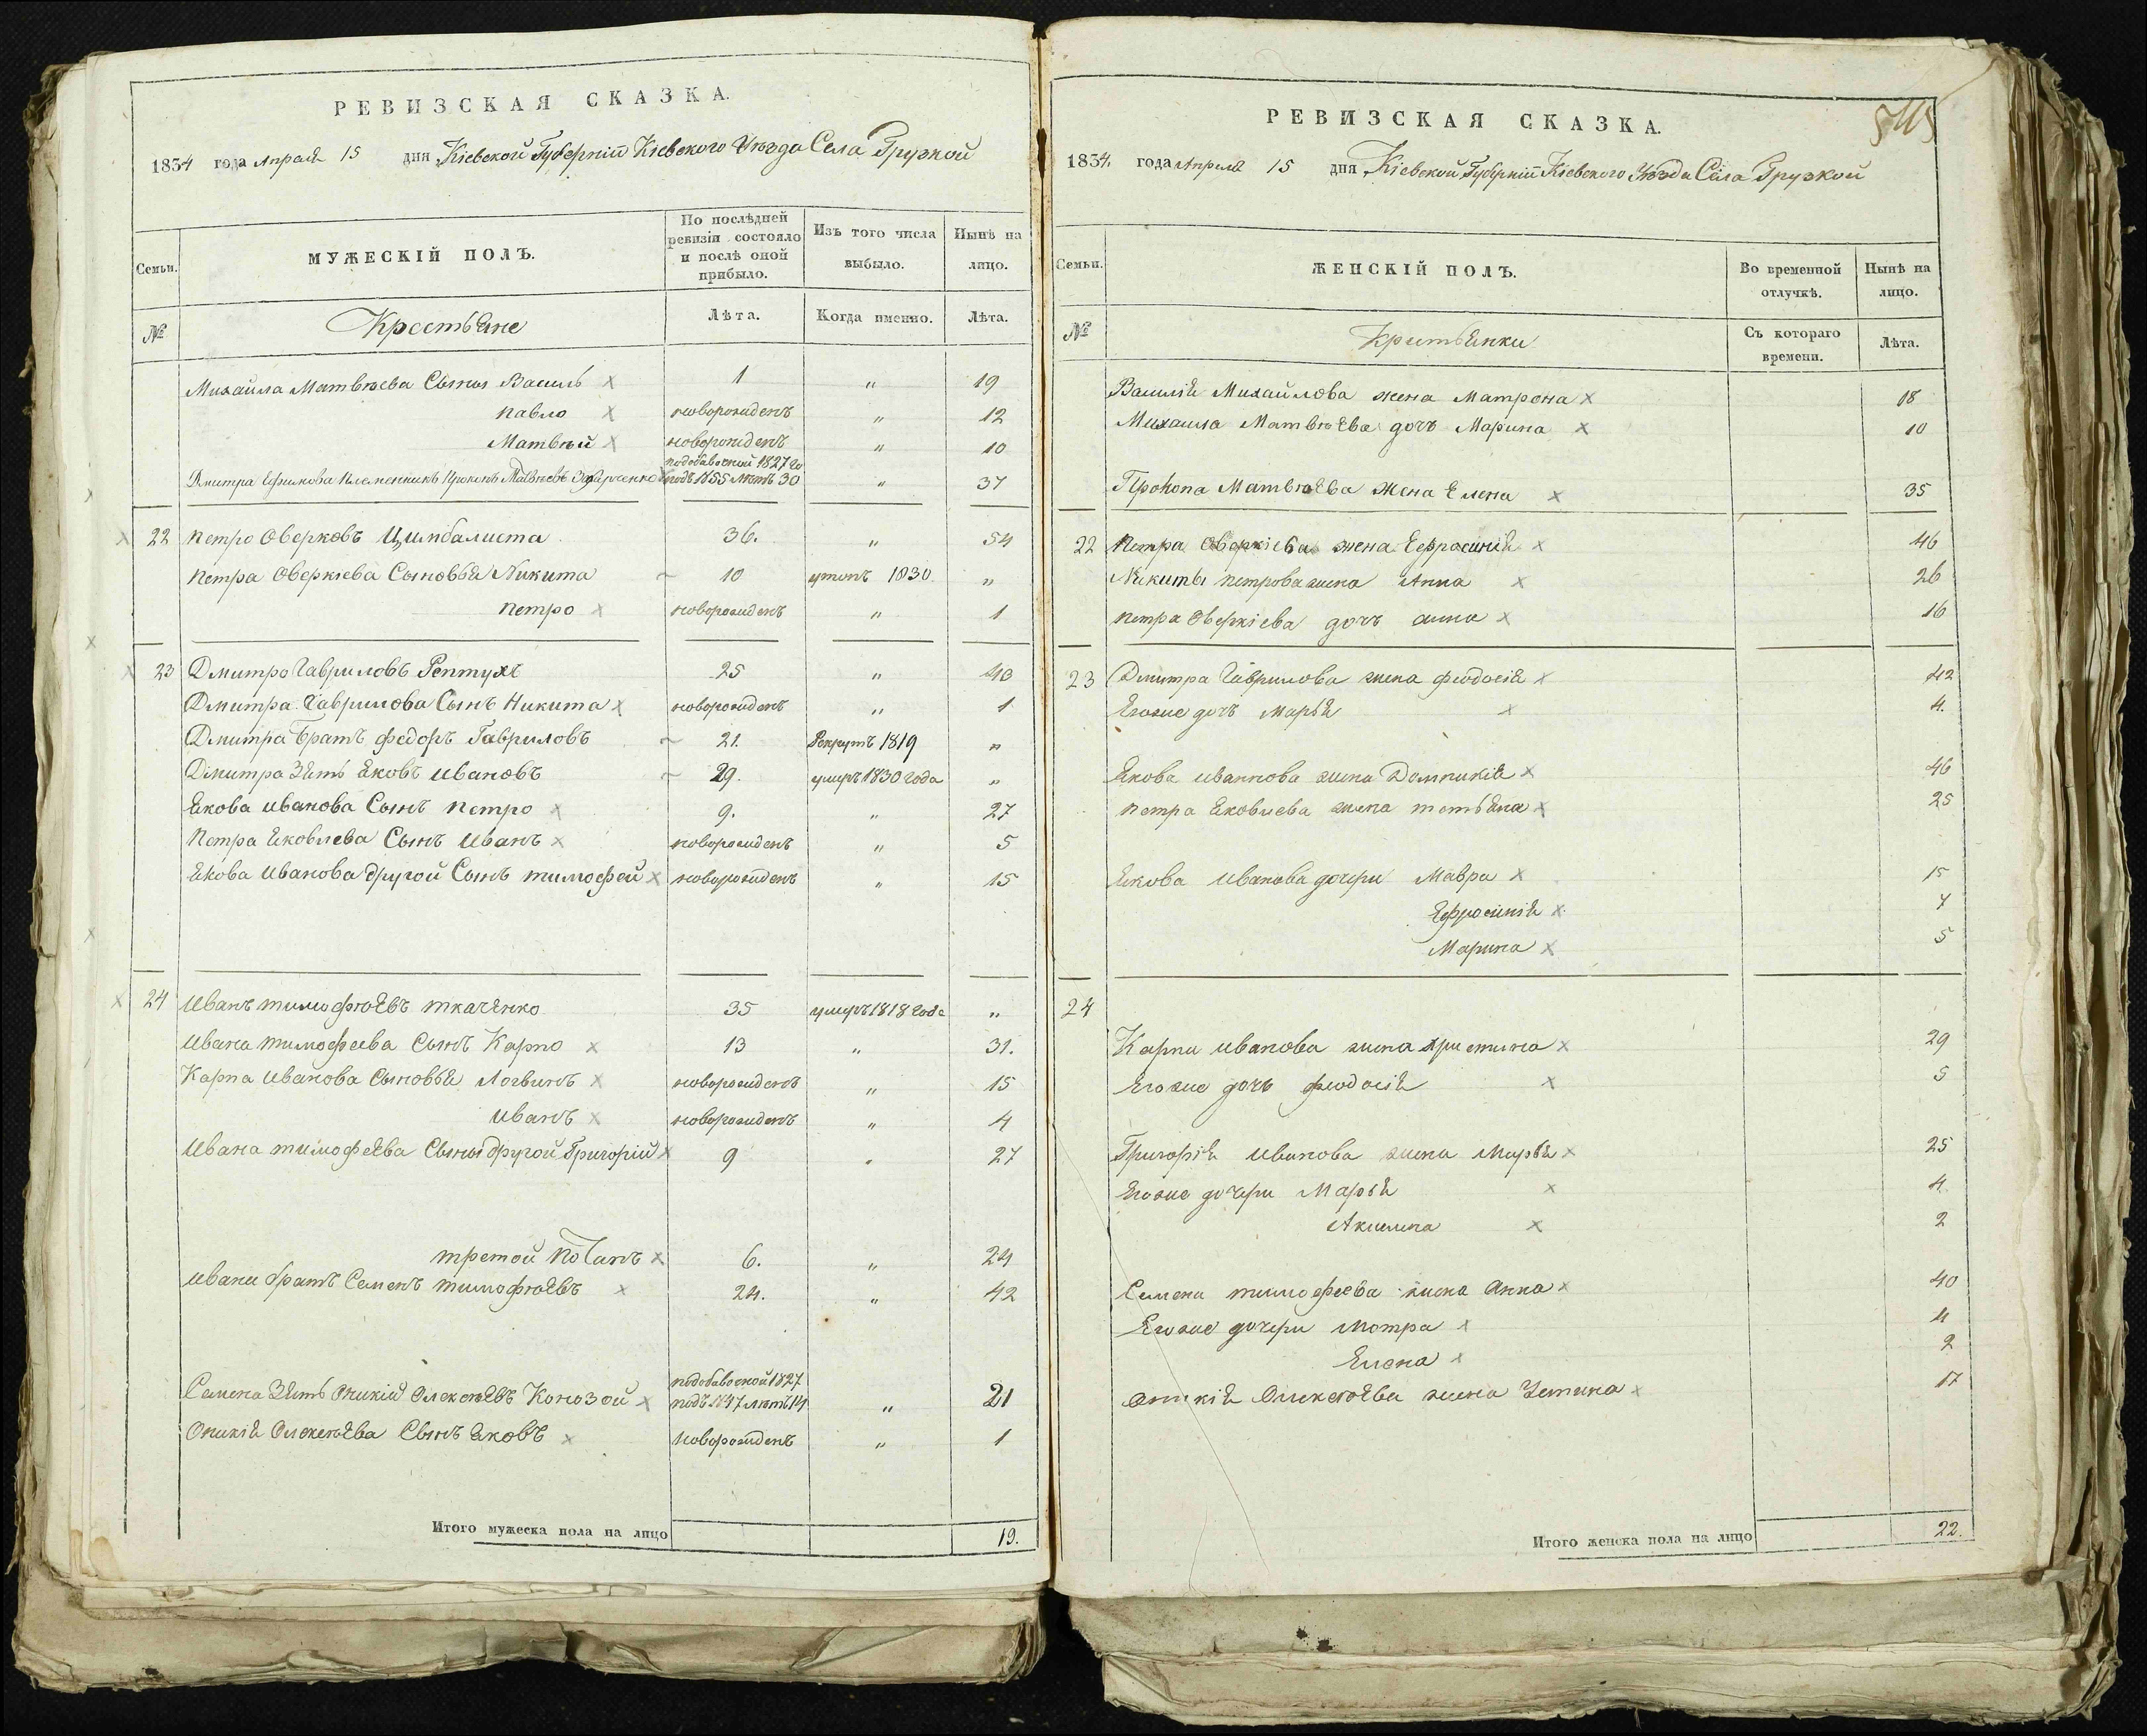 РЕВИЗСКАЯ СКАЗКА.
1834 года Апреля 15 дня Кіевской Губерніи Кіевского Уѣзда Села Грузкой
Семьи.
МУЖЕСКІЙ ПОЛЪ.
По послѣдней ревизіи состояло и послѣ оной прибыло.
Изъ того числа выбыло.
Нынѣ на лицо.
№
Крестьяне
Лѣта.
Когда именно.
Лѣта.
Михайла Матвѣева Сыны Василь 1 " 19
Павло новорожденъ " 12
Матвѣй новорожденъ " 10
Дмитра Ефимова племенникъ Прокопъ Матвѣевъ подобавочной 1827 го подъ 1855 лѣтъ 30 " 37
22 Петро Оверковъ Цимбалиста 36. " 54
Петра Оверкіева Сыновья Никита 10 утопъ 1830 "
Петро новорожденъ " 1
23 Дмитро Гавриловъ Рептухъ 25 " 40
Дмитра Гаврилова Сынъ Никита новорожденъ " 1
Дмитра Братъ Федоръ Гавриловъ 21. Рекрутъ 1819 "
Дмитра Зять Яковъ Ивановъ 29. умеръ 1830 года "
Якова Иванова Сынъ Петро 9. " 27
Петра Яковлева Сынъ Иванъ новорожденъ " 5
Якова Иванова другой Сынъ Тимофей новорожденъ " 15
24 Иванъ Тимофѣевъ Ткаченко 35 умеръ 1818 года "
Ивана Тимофеева Сынъ Карпо 13 " 31.
Карпа Иванова Сыновья Логвинъ новорожденъ " 15
Иванъ новорожденъ " 4
Ивана Тимофеева Сыны другой Григорій 9 " 27
третой Потапъ 6. " 24
Ивана братъ Семенъ Тимофѣевъ 24. " 42
Семена Зять Оникій Олексѣевъ подобавочной 1827 лѣтъ 14 " 21
Оникія Олексѣева Сынъ Яковъ новорожденъ " 1
Итого мужеска пола на лицо 19.
545
РЕВИЗСКАЯ СКАЗКА.
1834. года Апреля 15 дня Кіевской Губерніи Кіевского Уѣзда Села Грузкой
Семьи.
ЖЕНСКІЙ ПОЛЪ.
Во временной отлучкѣ.
Нынѣ на лицо.
№
Крестьянки
Съ котораго времени.
Лѣта.
Василія Михайлова жена Матрона 18
Михаила Матвѣева дочъ Марина 10
Прокопа Матвѣева Жена Елена 35
22 Петра Оверкіева жена Ефросинія 46
Никиты Петрова жена Анна 26
Петра Оверкіева дочъ Анна 16
23 Дмитра Гаврилова жена Феодосія 42
Егоже дочъ Марья 4.
Якова Иваннова жена Домникія 46
Петра Яковлева жена Татьяна 25
Якова Иванова дочери Мавра 15
Ефросинія 7
Марина 5
24
Карпа Иванова жена Христина 29
Егоже дочъ Феодосія 5
Григорія Иванова жена Марья 25
Егоже дочери Марья 4
Акилина 2
Семена Тимофеева жена Анна 40
Егоже дочери Мотра 4
Елена 2
Оникія Олексѣева жена Устина 17
Итого женска пола на лицо 22.